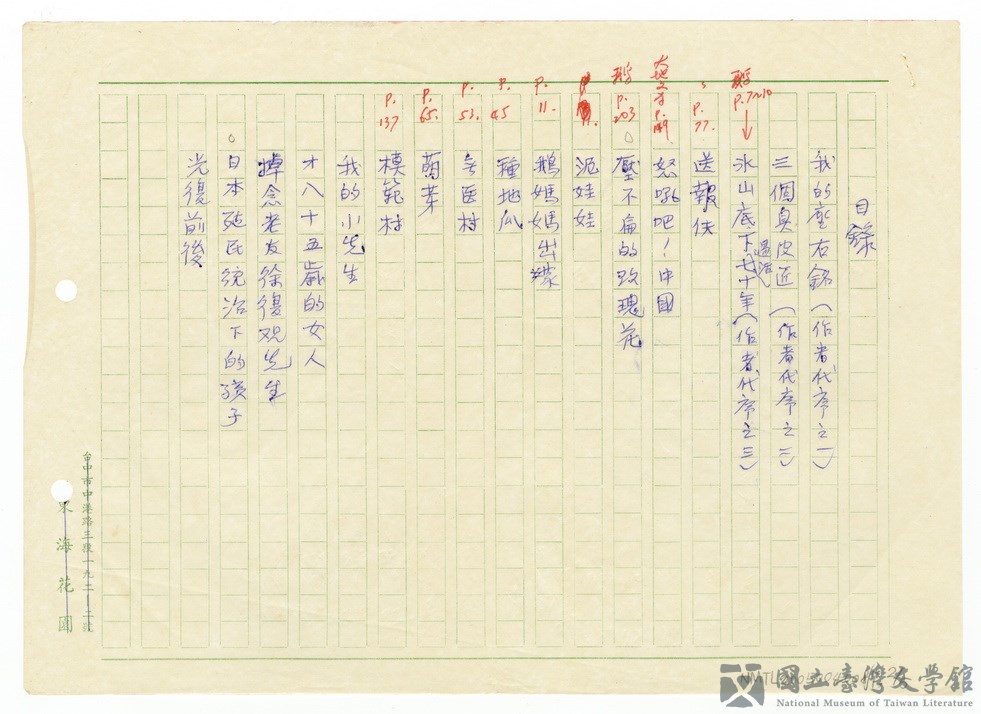 目錄
我的座右銘（作者代序之一）
三個臭皮匠（作者代序之二）
冰山底下過活七十年（作者代序之三）
P.
送報伕
P.
77.
怒吼吧！中國
P.
壓不扁的玫瑰花
P.
203
泥娃娃
11.
鵝媽媽出嫁
P.
11.
種地瓜
P.
45
無医村
P.
53.
萌芽
P.
65.
模範村
P.
137
我的小先生
才八十五歲的女人
悼念老友徐復观先生
日本殖民統治下的孩子
光復前後
台中市中港路三段一九二─二號
東海花園
國立臺灣文學館
National Museum of Taiwan Literature